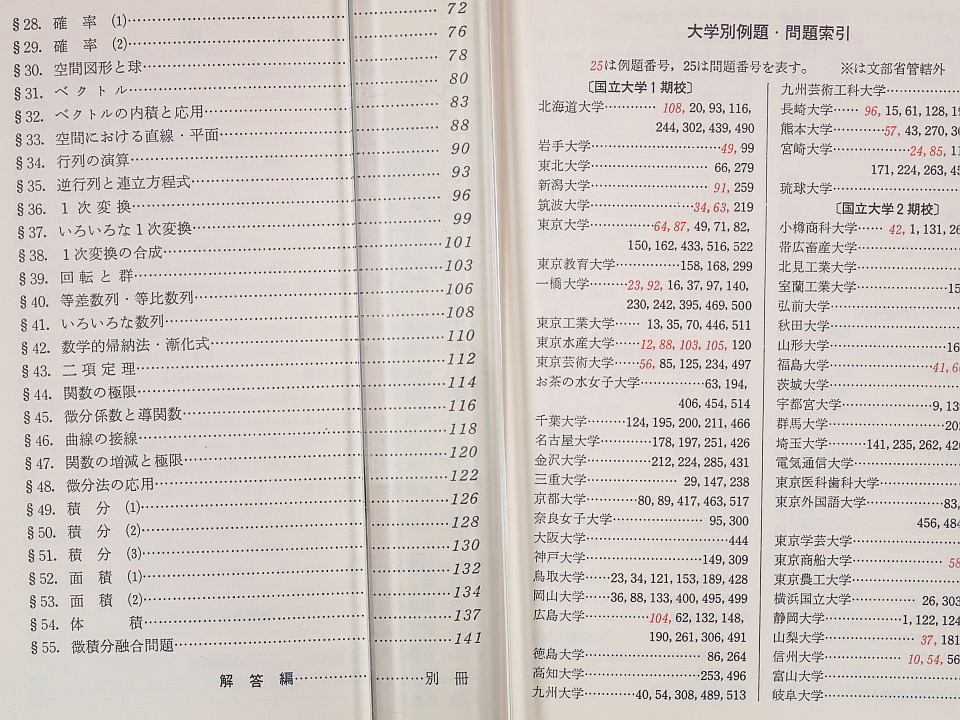 §28. 確 率 (1)………72
§29. 確 率 (2)………76
§30. 空間図形と球………78
§31. ベ ク ト ル………80
§32. ベクトルの内積と応用………83
§33. 空間における直線・平面………88
§34. 行列の演算………90
§35. 逆行列と連立方程式………93
§36. 1 次 変 換………96
§37. いろいろな1次変換………99
§38. 1次変換の合成………101
§39. 回 転 と 群………103
§40. 等差数列・等比数列………106
§41. いろいろな数列………108
§42. 数学的帰納法・漸化式………110
§43. 二 項 定 理………112
§44. 関数の極限………114
§45. 微分係数と導関数………116
§46. 曲線の接線………118
§47. 関数の増減と極限………120
§48. 微分法の応用………122
§49. 積 分 (1)………126
§50. 積 分 (2)………128
§51. 積 分 (3)………130
§52. 面 積 (1)………132
§53. 面 積 (2)………134
§54. 体 積………137
§55. 微積分融合問題………141
解 答 編………別 冊
大学別例題・問題索引
25は例題番号, 25は問題番号を表す。 ※は文部省管轄外
〔国立大学1期校〕
北海道大学………108, 20, 93, 116,
244, 302, 439, 490
岩手大学………49, 99
東北大学………66, 279
新潟大学………91, 259
筑波大学………34, 63, 219
東京大学………64, 87, 49, 71, 82,
150, 162, 433, 516, 522
東京教育大学………158, 168, 299
一橋大学………23, 92, 16, 37, 97, 140,
230, 242, 395, 469, 500
東京工業大学…… 13, 35, 70, 446, 511
東京水産大学……12, 88, 103, 105, 120
東京芸術大学……56, 85, 125, 234, 497
お茶の水女子大学………63, 194,
406, 454, 514
千葉大学………124, 195, 200, 211, 466
名古屋大学………178, 197, 251, 426
金沢大学………212, 224, 285, 431
三重大学………29, 147, 238
京都大学………80, 89, 417, 463, 517
奈良女子大学………95, 300
大阪大学………444
神戸大学………149, 309
鳥取大学……23, 34, 121, 153, 189, 428
岡山大学……36, 88, 133, 400, 495, 499
広島大学………104, 62, 132, 148,
190, 261, 306, 491
徳島大学………86, 264
高知大学………253, 496
九州大学………40, 54, 308, 489, 513
九州芸術工科大学………
長崎大学…… 96, 15, 61, 128, 19
熊本大学………57, 43, 270, 30
宮崎大学………24, 85, 11
171, 224, 263, 45
琉球大学………
〔国立大学2期校〕
小樽商科大学…… 42, 1, 131, 26
帯広畜産大学………
北見工業大学………
室蘭工業大学………15
弘前大学………
秋田大学………
山形大学………16
福島大学………41, 6
茨城大学………
宇都宮大学………9, 13
群馬大学………20
埼玉大学………141, 235, 262, 42
電気通信大学………
東京医科歯科大学………
東京外国語大学………83,
456, 484
東京学芸大学………
東京商船大学………58
東京農工大学………
横浜国立大学………26, 303
静岡大学………1, 122, 124
山梨大学………37, 181
信州大学………10, 54, 56
富山大学………
岐阜大学………